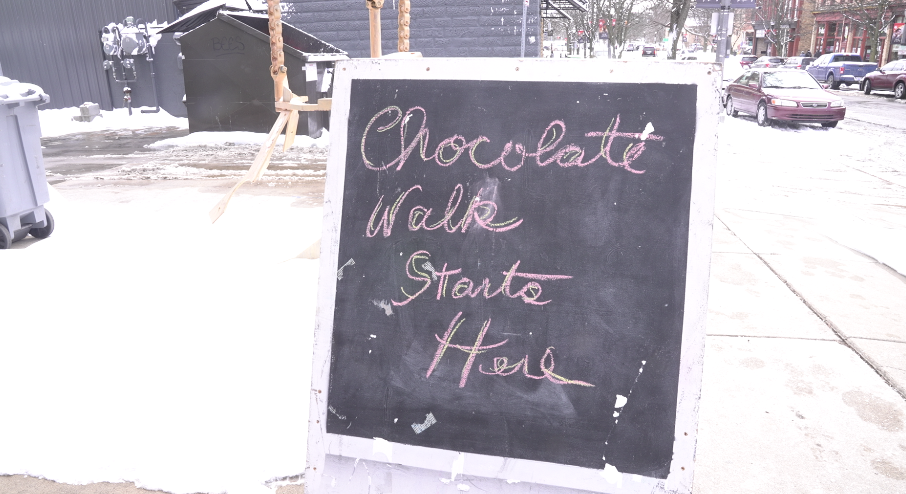 Chocolate
Walk
Starts
Here